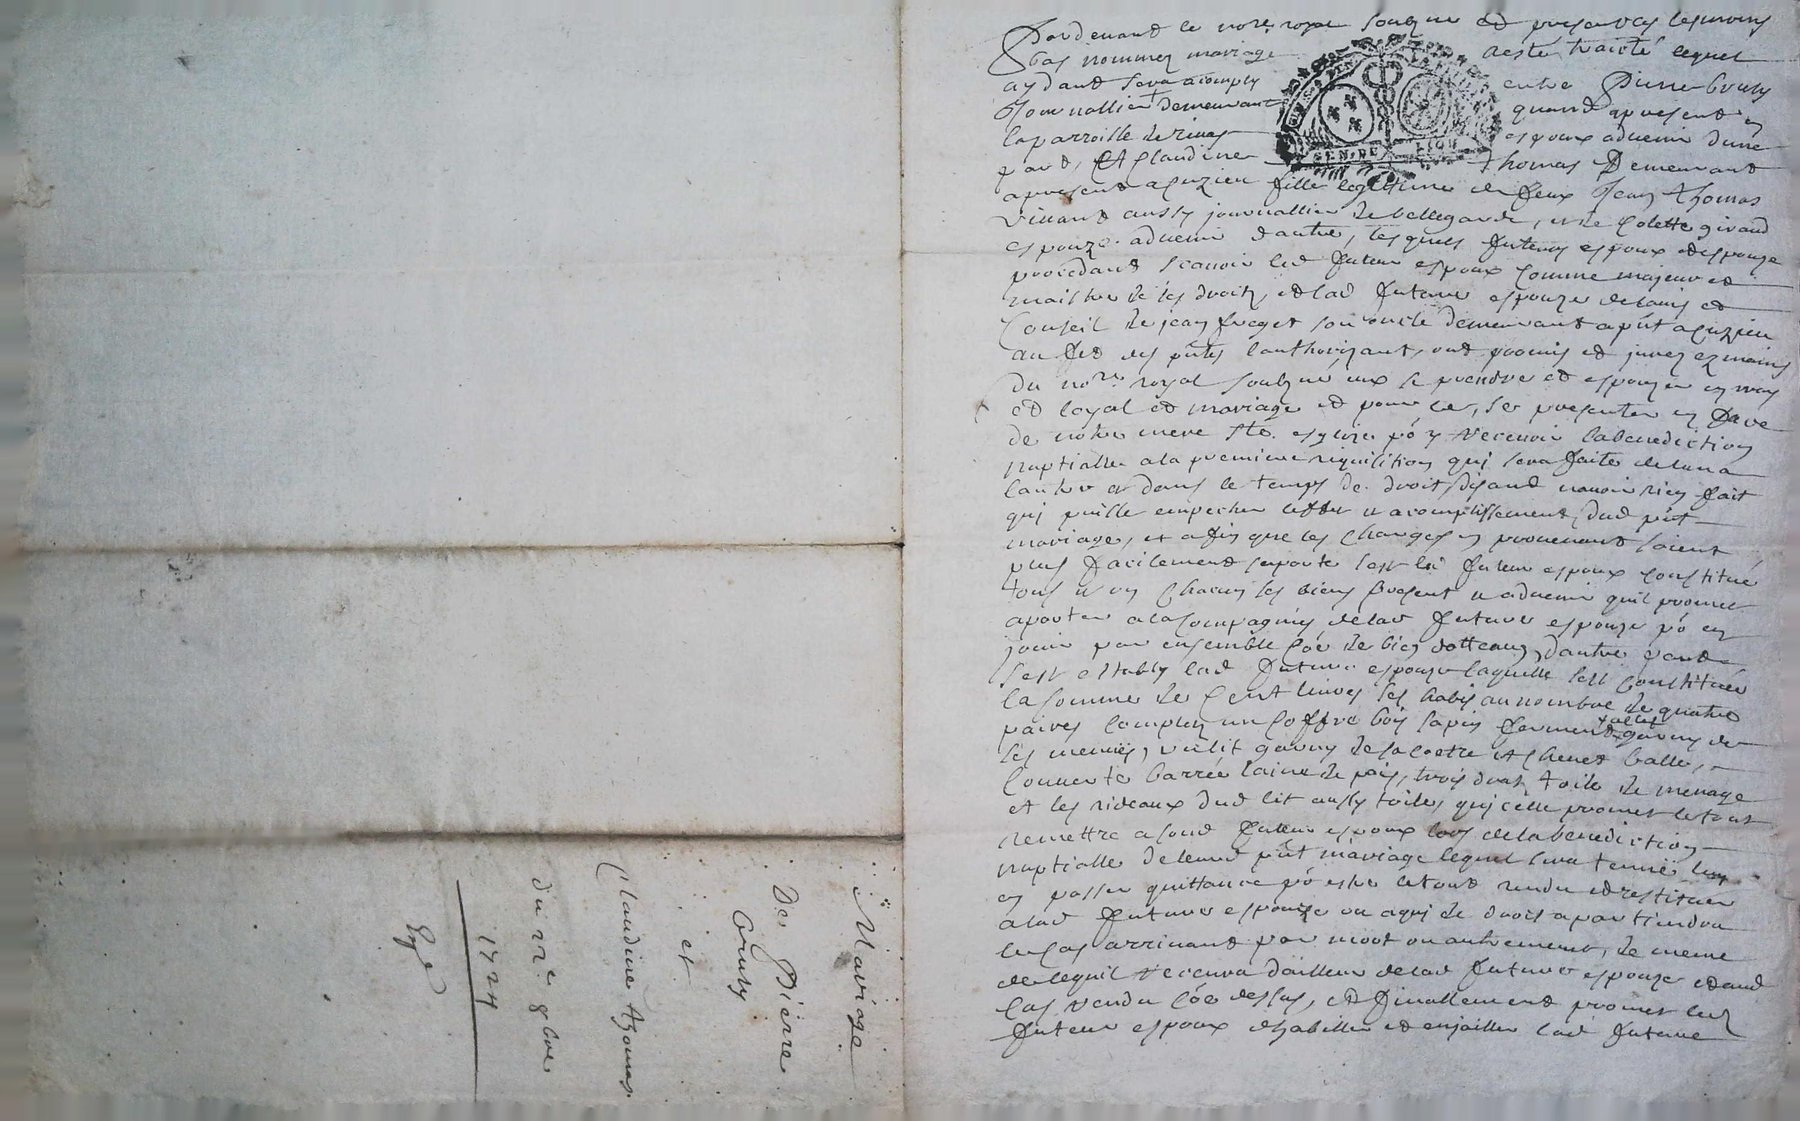 Pardevant le nore royal soubzne et presences les moins
bas nommez mariage a esté traicté lequel
aydant sera acomply entre Pierre Crusy
Journallier demeurant quand apresent en
la parroisse de rivas espoux advenir d'une
part, Et Claudine Thomas Demeurant
apresent a Cuzieu fille legitime de feux Jean Thomas
vivant aussy journallier de bellegarde, et de Colette giraud
espouze advenir d'autre, lesquels futeurs espoux et espouze
procedant scavoir led futeur espoux Comme majeur et
maistre de ses droits, et lad future espouze de lavis et
Conseil de jean freget son oncle demeurant a pnt a Cuzieu
au fet des pntes lauthorizant, ont promis et jurez ez mains
du nore royal soubzne eux se prendre et espouzer en vray
et loyal et mariage et pour ce, se presenter en face
de notre mere Ste esglize po y recevoir la benediction
nuptialle a la premiere requisition qui sera faite de luna
lautre et dans le temps de droit, disant navoir rien fait
qui puisse empecher leffet et acomplissement dud pnt
mariage, et afin que les Charges en provenant soient
plus facilement suporté sest led futeur espoux constitué
tous et un Chacun ses biens presant et advenir quil promet
aporter a la compagnie de lad future espouze po en
jouir par ensemble coe de bien dotteaux, d'autre part
sest establly lad future espouze laquelle sest constituée
la somme de Cent livres ses habis au nombre de quatre
paires complez un Coffre bois sapin fermant a clef garny de
ses menues, un lit garny de sa coetre et Chevet balle,
Couverte barrée laine de pais, trois drats toile de menage
et les rideaux dud lit aussy toiles qui celle promet le tout
remettre a sond futeur espoux lors de la benediction
nuptialle de leurd pnt mariage lequel sera tenue luy
en passer quittance po estre le tout rendu et restituer
a lad future espouze ou a qui de droit apartiendra
le cas arrivant par mort ou autrement, de meme
de ce quil recevra dailleur de lad future espouze et aud
Cas rendu coe dessus, et finallement promet led
futeur espoux dhabiller et enjailler lad future
GEN. DE LION
Mariage
De Pierre
Crusy
et
Claudine Thomas
du 22e 8bre
1724
Expe